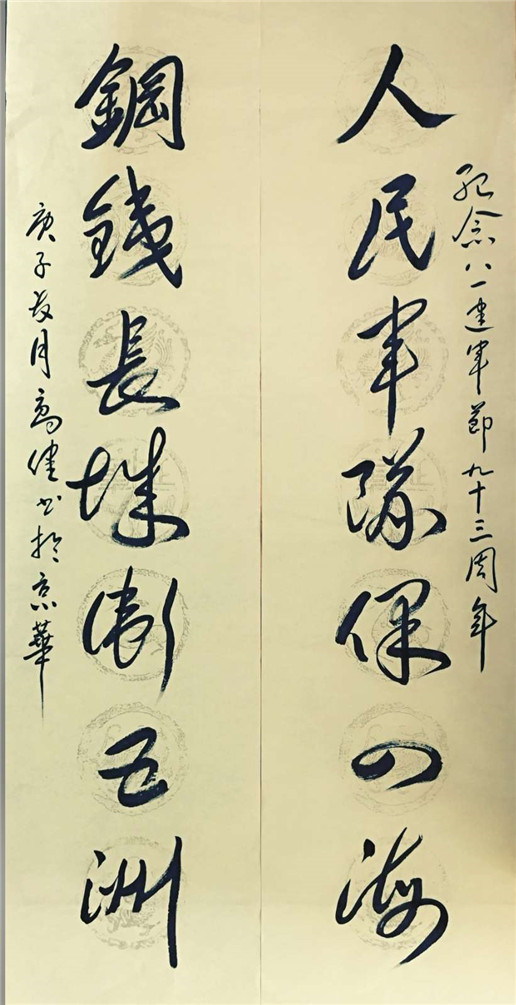 纪念八一建军节九十三周年
人民军隊保四海
鋼鐵長城衛五洲
庚子长月高健书於京華